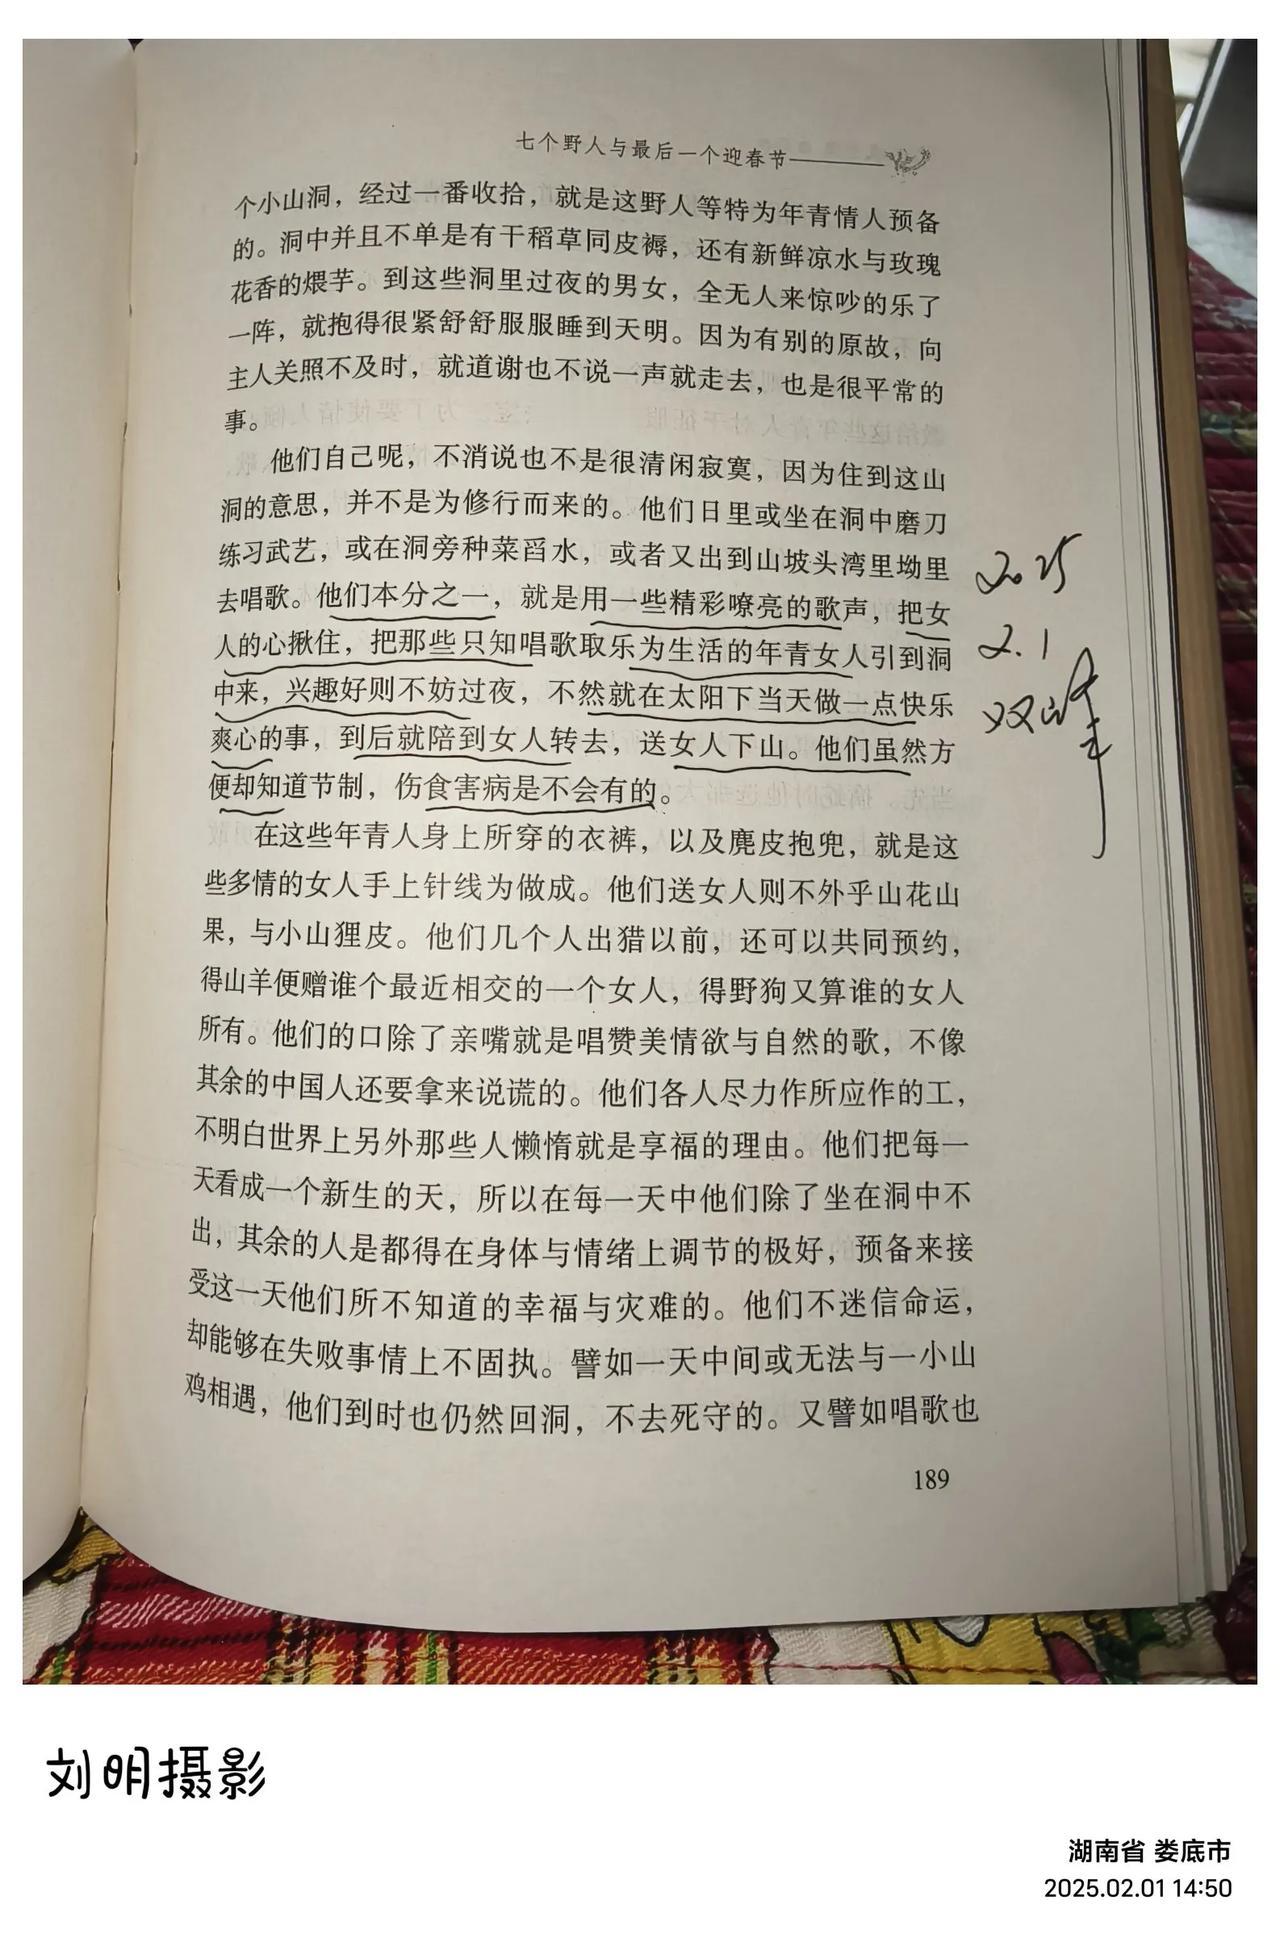 七个野人与最后一个迎春节
个小山洞，经过一番收拾，就是这野人等特为年青情人预备
的。洞中并且不单是有干稻草同皮褥，还有新鲜凉水与玫瑰
花香的煨芋。到这些洞里过夜的男女，全无人来惊吵的乐了
一阵，就抱得很紧舒舒服服睡到天明。因为有别的原故，向
主人关照不及时，就道谢也不说一声就走去，也是很平常的
事。
他们自己呢，不消说也不是很清闲寂寞，因为住到这山
洞的意思，并不是为修行而来的。他们日里或坐在洞中磨刀
练习武艺，或在洞旁种菜舀水，或者又出到山坡头湾里坳里
去唱歌。他们本分之一，就是用一些精彩嘹亮的歌声，把女
人的心揪住，把那些只知唱歌取乐为生活的年青女人引到洞
中来，兴趣好则不妨过夜，不然就在太阳下当天做一点快乐
爽心的事，到后就陪到女人转去，送女人下山。他们虽然方
便却知道节制，伤食害病是不会有的。
在这些年青人身上所穿的衣裤，以及麂皮抱兜，就是这
些多情的女人手上针线为做成。他们送女人则不外乎山花山
果，与小山狸皮。他们几个人出猎以前，还可以共同预约，
得山羊便赠谁个最近相交的一个女人，得野狗又算谁的女人
所有。他们的口除了亲嘴就是唱赞美情欲与自然的歌，不像
其余的中国人还要拿来说谎的。他们各人尽力作所应作的工，
不明白世界上另外那些人懒惰就是享福的理由。他们把每一
天看成一个新生的天，所以在每一天中他们除了坐在洞中不
出，其余的人是都得在身体与情绪上调节的极好，预备来接
受这一天他们所不知道的幸福与灾难的。他们不迷信命运，
却能够在失败事情上不固执。譬如一天中间或无法与一小山
鸡相遇，他们到时也仍然回洞，不去死守的。又譬如唱歌也
189
2025
2.1
双峰
刘明摄影
湖南省 娄底市
2025.02.01 14:50